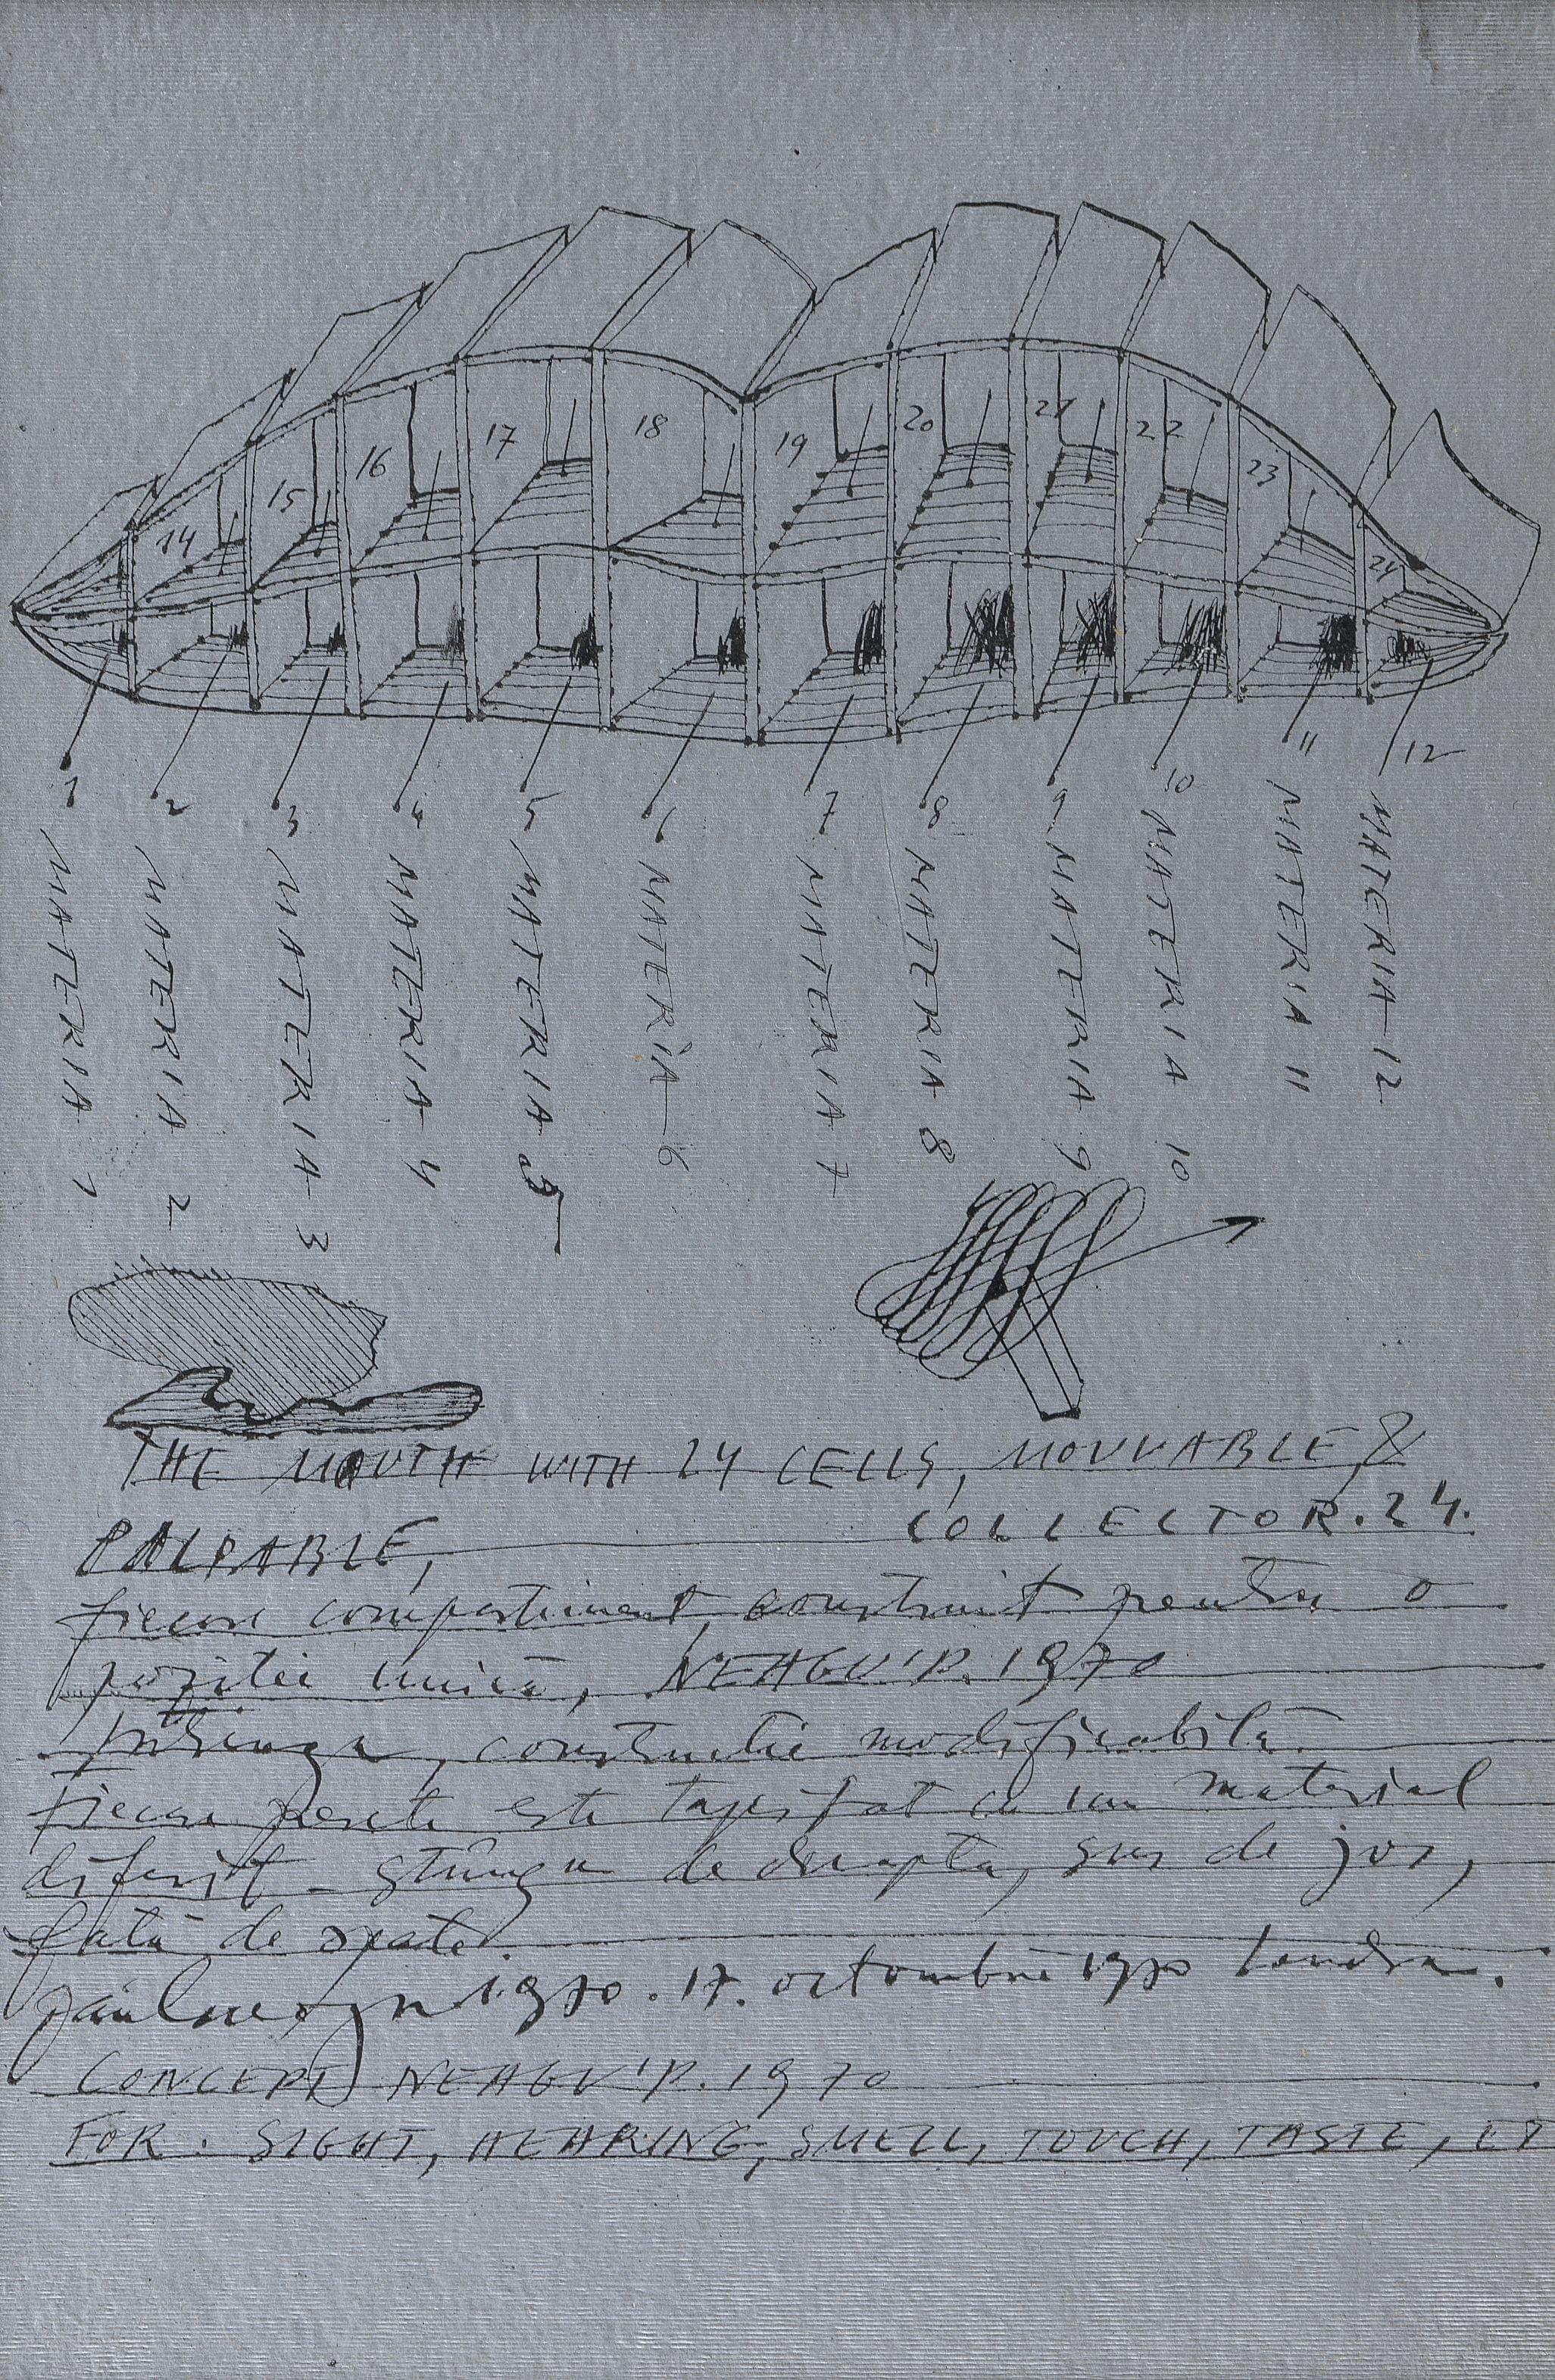 14 15 16 17 18 19 20 21 22 23 24
1 2 3 4 5 6 7 8 9 10 11 12
MATERIA 1
MATERIA 2
MATERIA 3
MATERIA 4
MATERIA 5
MATERIA 6
MATERIA 7
MATERIA 8
MATERIA 9
MATERIA 10
MATERIA 11
MATERIA 12
THE MOUTH WITH 24 CELLS, MOUVABLE &
PALPABLE, COLLECTOR. 24.
fiecare compartiment, construit pentru o
poziție unică, NEAGU'P. 1970
construcție modificabilă
fiecare perete este tapisat cu un material
diferit - stânga de dreapta, sus de jos,
față de spate.
paul neagu 1970. 17. octombrie 1970 Londra.
CONCEPT NEAGU'P. 1970
FOR: SIGHT, HEARING, SMELL, TOUCH, TASTE, ET